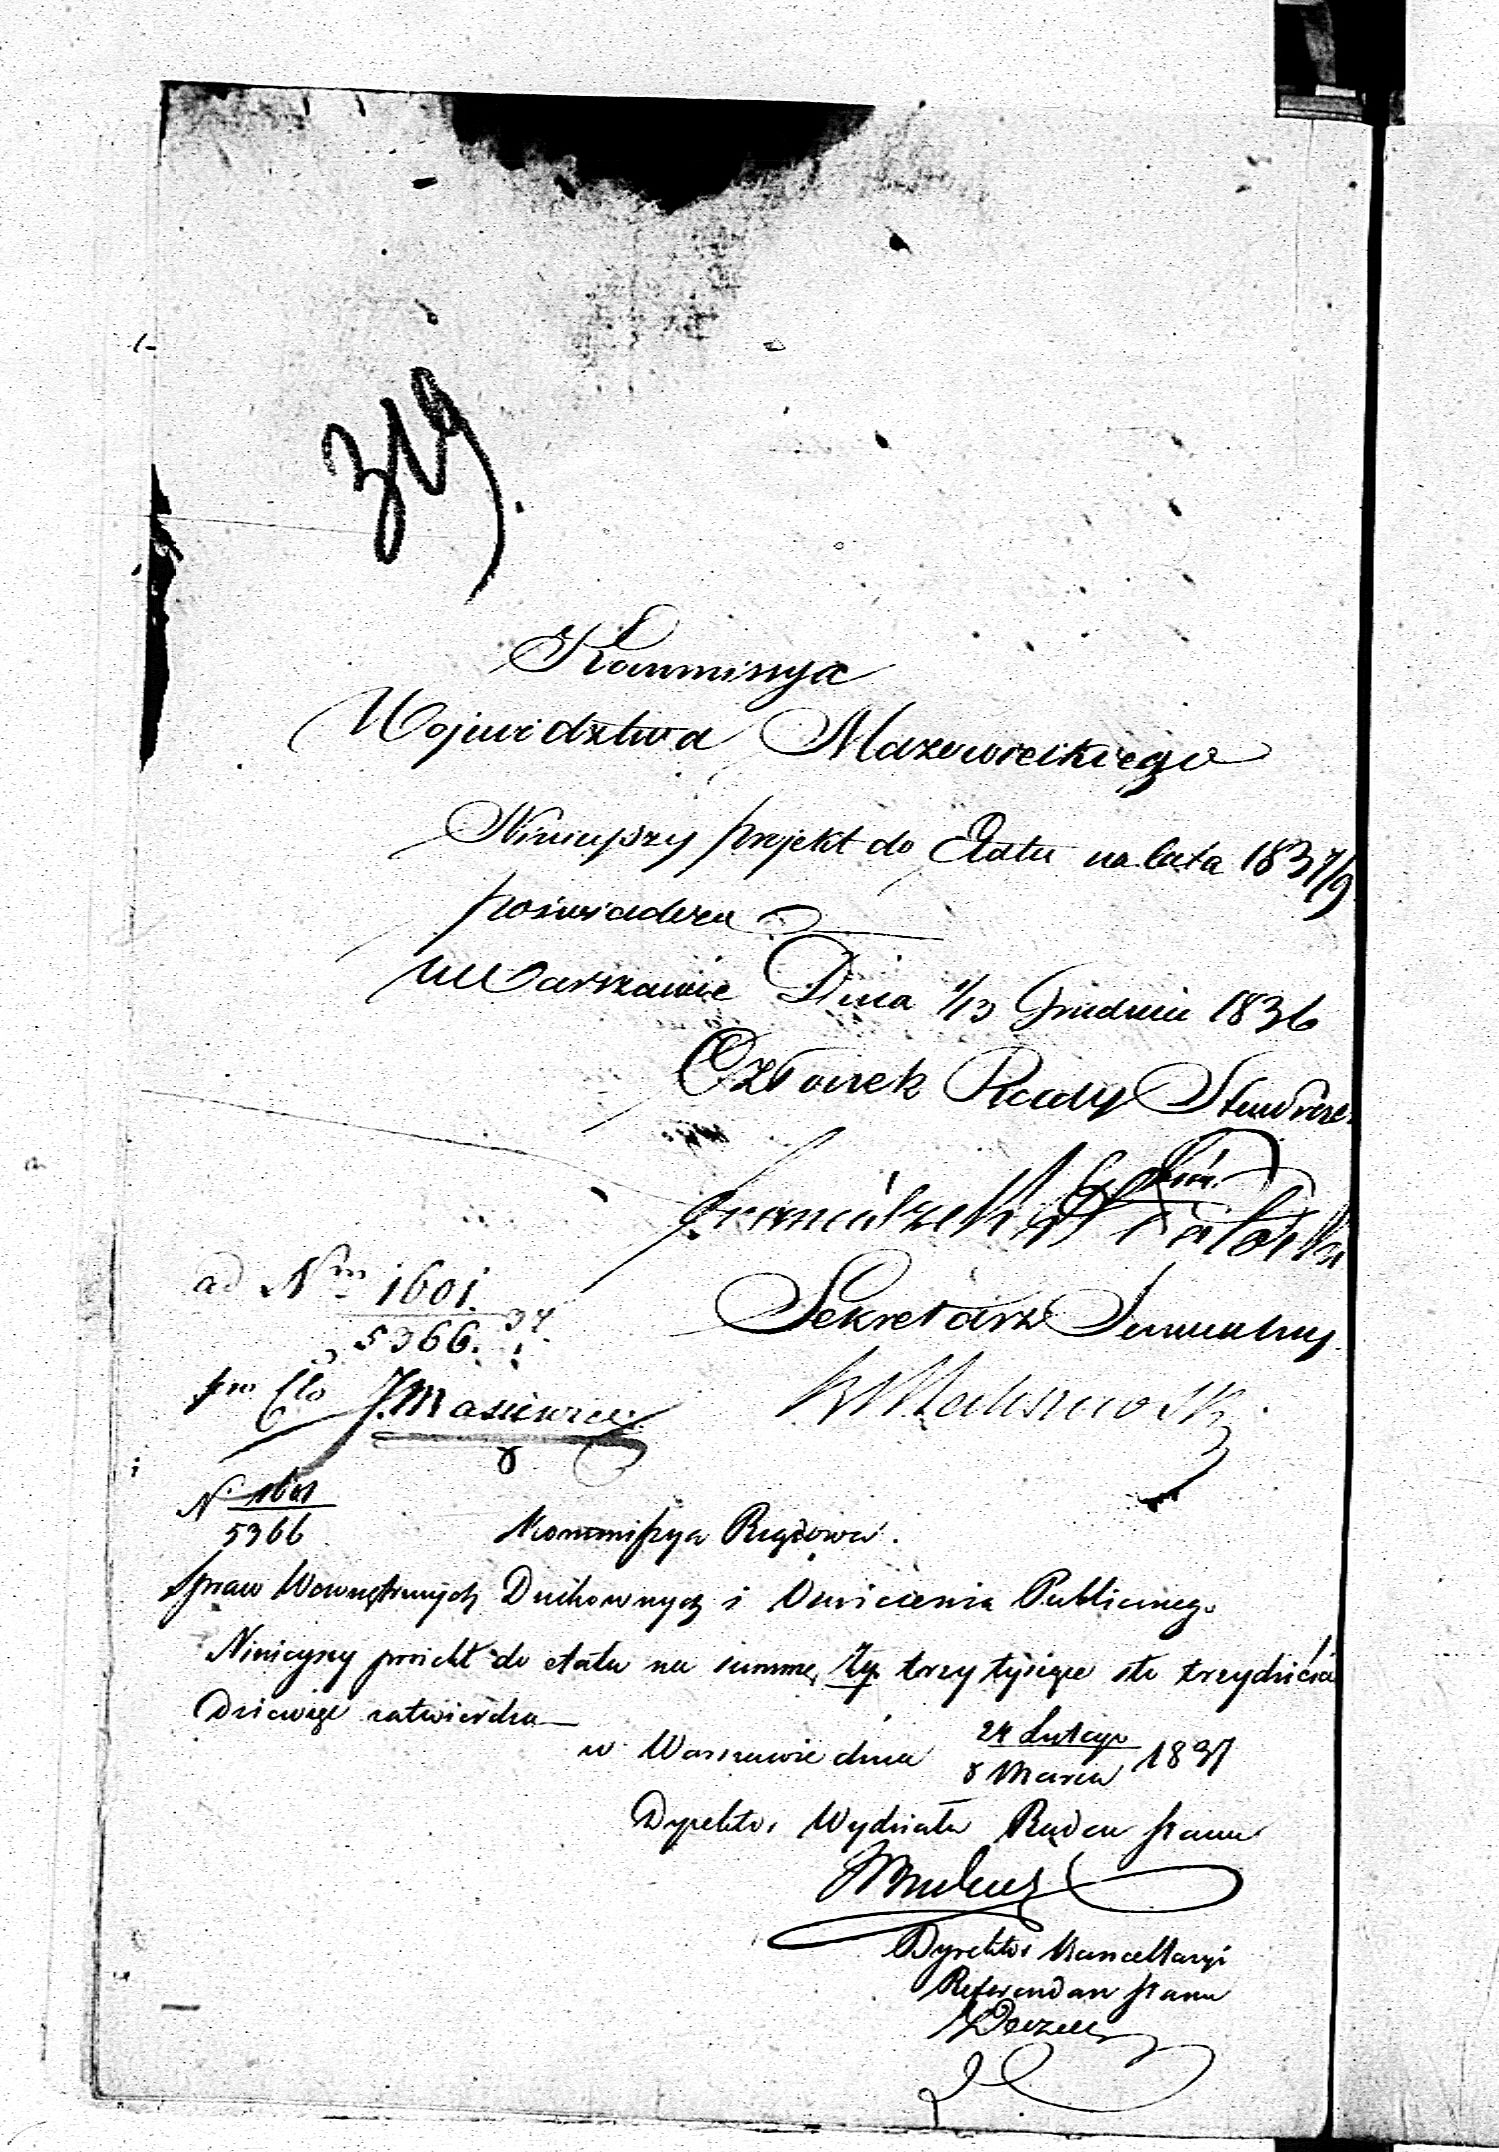 319.
Kommissya
Województwa Mazowieckiego
Ninieyszy projekt do Etatu na lata 1837/9
poświadcza
w Warszawie Dnia 1/13 Grudnia 1836
Członek Rady Stanu Preze
Sekretarz Jeneralny
ad Nm 1601. / 5366. 37.
N. 1601 / 5366
Kommissya Rządowa.
Spraw Wewnętrznych Duchownych i Oświecenia Publicznego
Ninieyszy proiekt do etatu na summę Zp. trzy tysiące sto trzydzieści
dziewięć zatwierdza
w Warszawie dnia 24 Lutego / 8 Marca 1837
Dyrektor Wydziału Radca Stanu
Dyrektor Kancellaryi
Referendarz Stanu